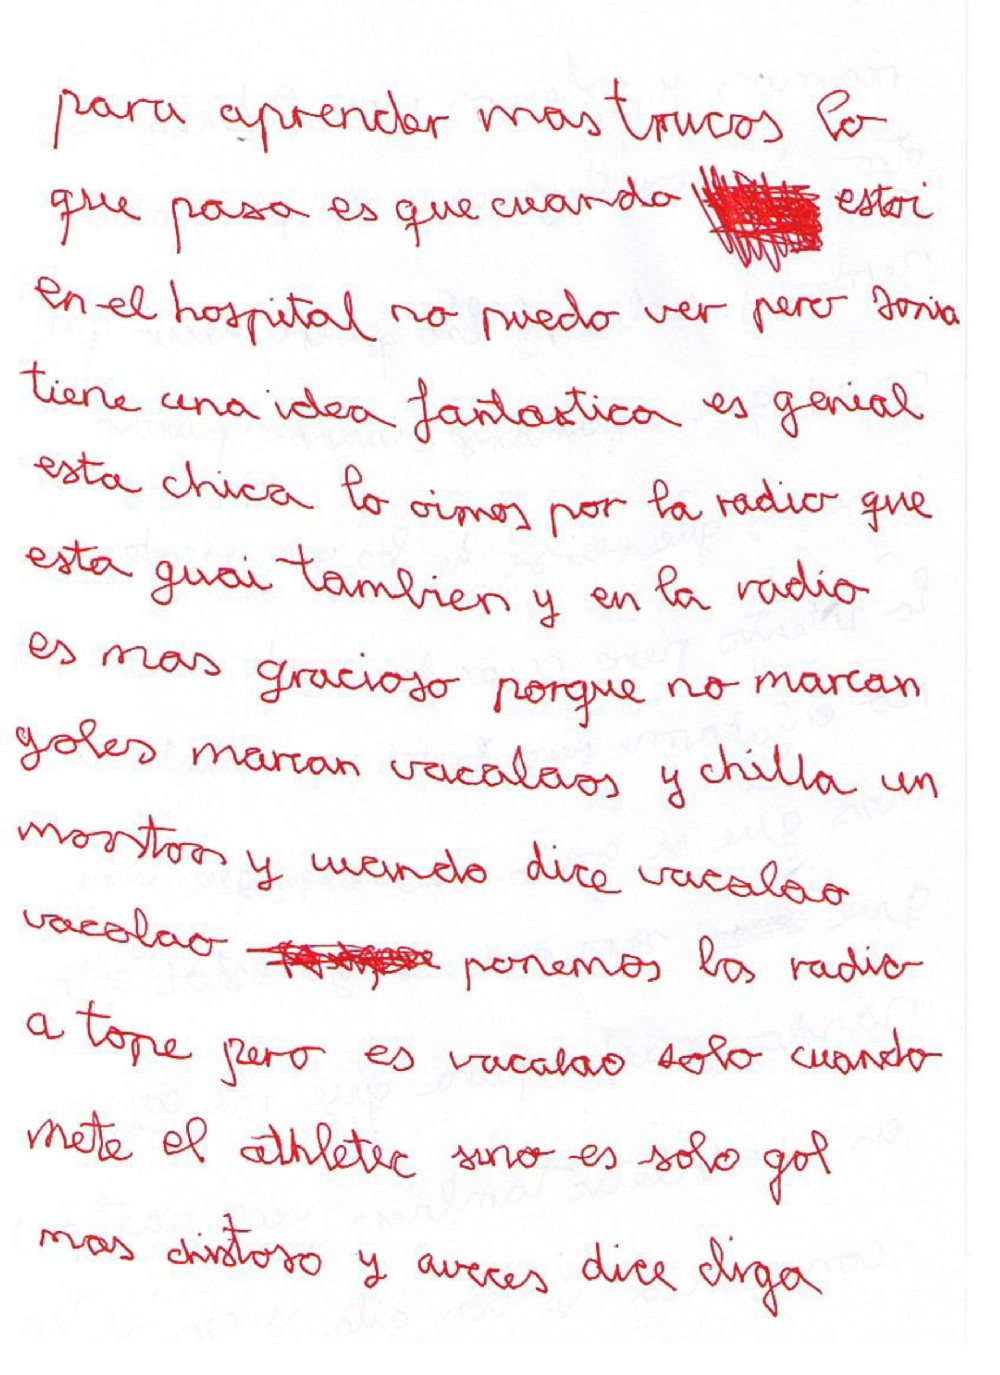 para aprender mas trucos lo
que pasa es que cuando estoi
en el hospital no puedo ver pero sonia
tiene una idea fantastica es genial
esta chica lo oimos por la radio que
esta guai tambien y en la radio
es mas gracioso porque no marcan
goles marcan vacalaos y chilla un
monton y cuando dice vacalao
vacalao ponemos la radio
a tope pero es vacalao solo cuando
mete el athletic sino es solo gol
mas chistoso y aveces dice cliga